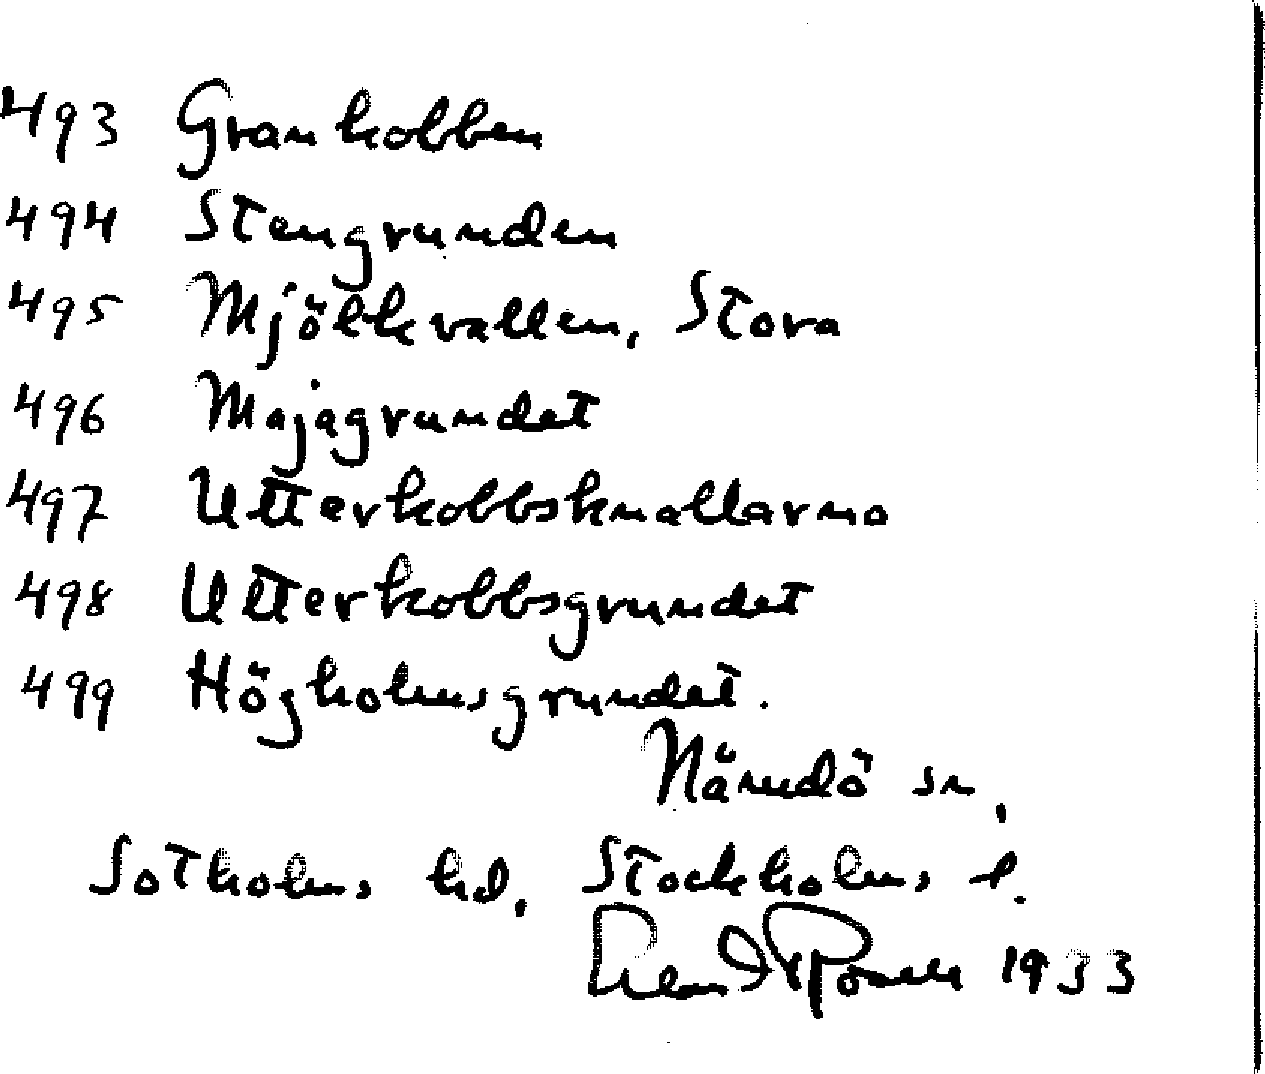 493 Grankobben
494 Stengrunden
495 Mjölkvallen, Stora
496 Majagrundet
497 Utterkobbsknallarna
498 Utterkobbsgrundet
499 Högholmsgrundet.
Nämdö sn,
Sotholms hd, Stockholms l.
1933